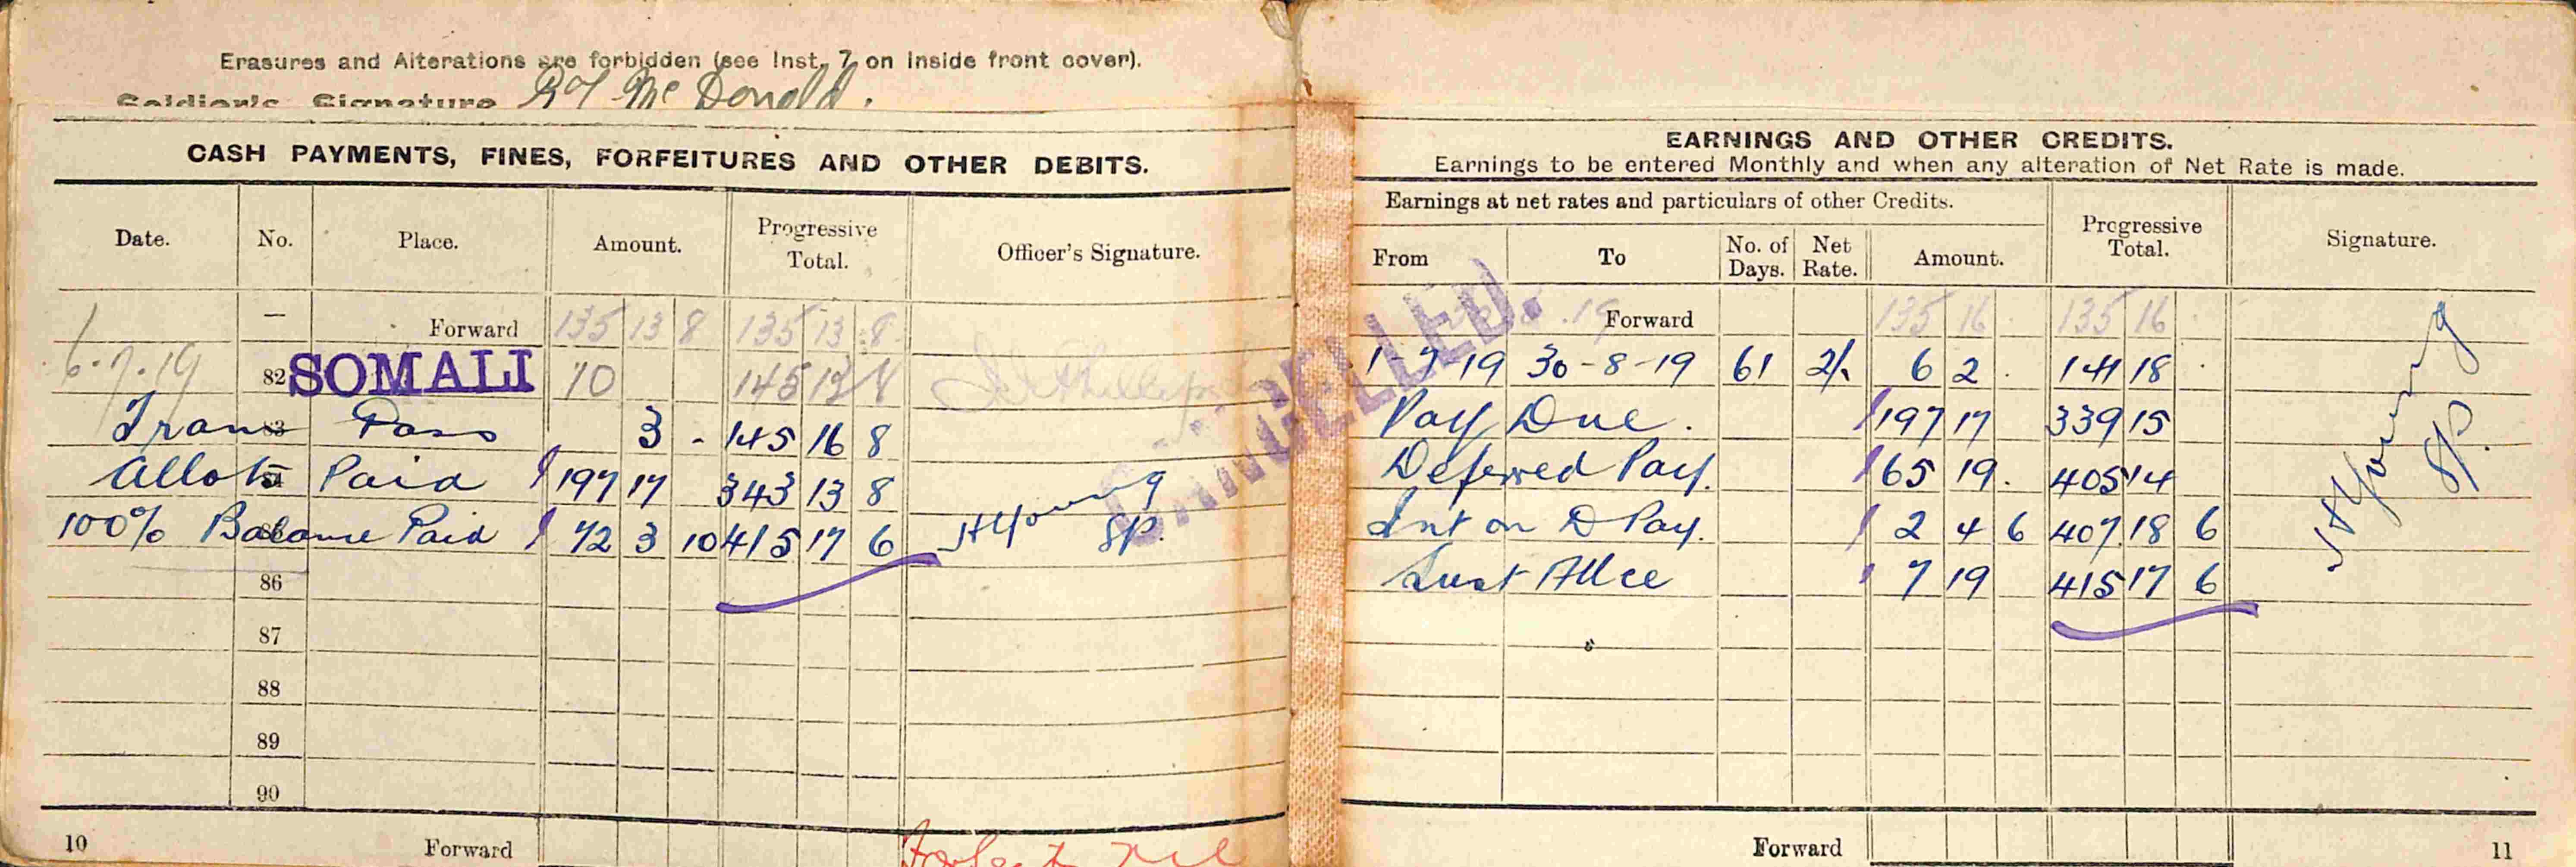 Erasures and Alterations are forbidden (see Inst. 7 on inside front cover).
Soldier's Signature McDonald.
CASH PAYMENTS, FINES, FORFEITURES AND OTHER DEBITS.
Date. No. Place. Amount. Progressive Total. Officer's Signature.
— Forward 135 13 8 135 13 8
6.7.19 82 SOMALI 10 145 13 8
Trans Pass 3 - 145 16 8
Allots Paid 197 17 343 13 8
100% Balance Paid 72 3 10 415 17 6 Young
86
87
88
89
90
10 Forward
EARNINGS AND OTHER CREDITS.
Earnings to be entered Monthly and when any alteration of Net Rate is made.
Earnings at net rates and particulars of other Credits. Progressive Total. Signature.
From To No. of Days. Net Rate. Amount.
Forward 135 16 . 135 16 .
1-7-19 30-8-19 61 2/. 6 2 . 141 18 .
Pay Due. 197 17 339 15
Deferred Pay. 65 19 . 405 14
Int on D Pay. 2 4 6 407 18 6
Sust Allce 7 19 415 17 6
Young
CANCELLED.
Forward 11